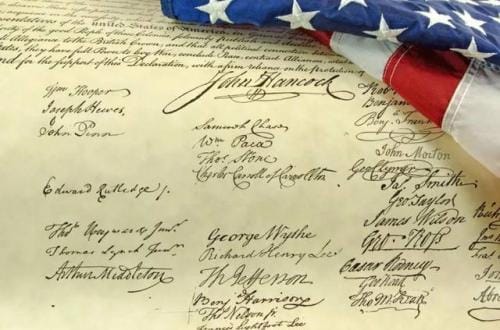 United States of America
of the good People of these Colonies
Allegiance to the British Crown and that all political connection
States, they have full Power to levy War, conclude Peace, contract Alliances,
And for the support of this Declaration, with a firm reliance on the protection of
John Hancock
Wm Hooper
Joseph Hewes,
John Penn
Edward Rutledge /.
Thos Heyward Junr.
Thomas Lynch Junr.
Arthur Middleton
Samuel Chase
Wm Paca
Thos Stone
Charles Carroll of Carrollton
George Wythe
Richard Henry Lee
Th Jefferson
Benj Harrison
Thos Nelson jr.
Francis Lightfoot Lee
Benj. Frank
John Morton
Geo Clymer
Jas. Smith
Geo. Taylor
James Wilson
Geo. Ross
Caesar Rodney
Geo Read
Tho M:Kean